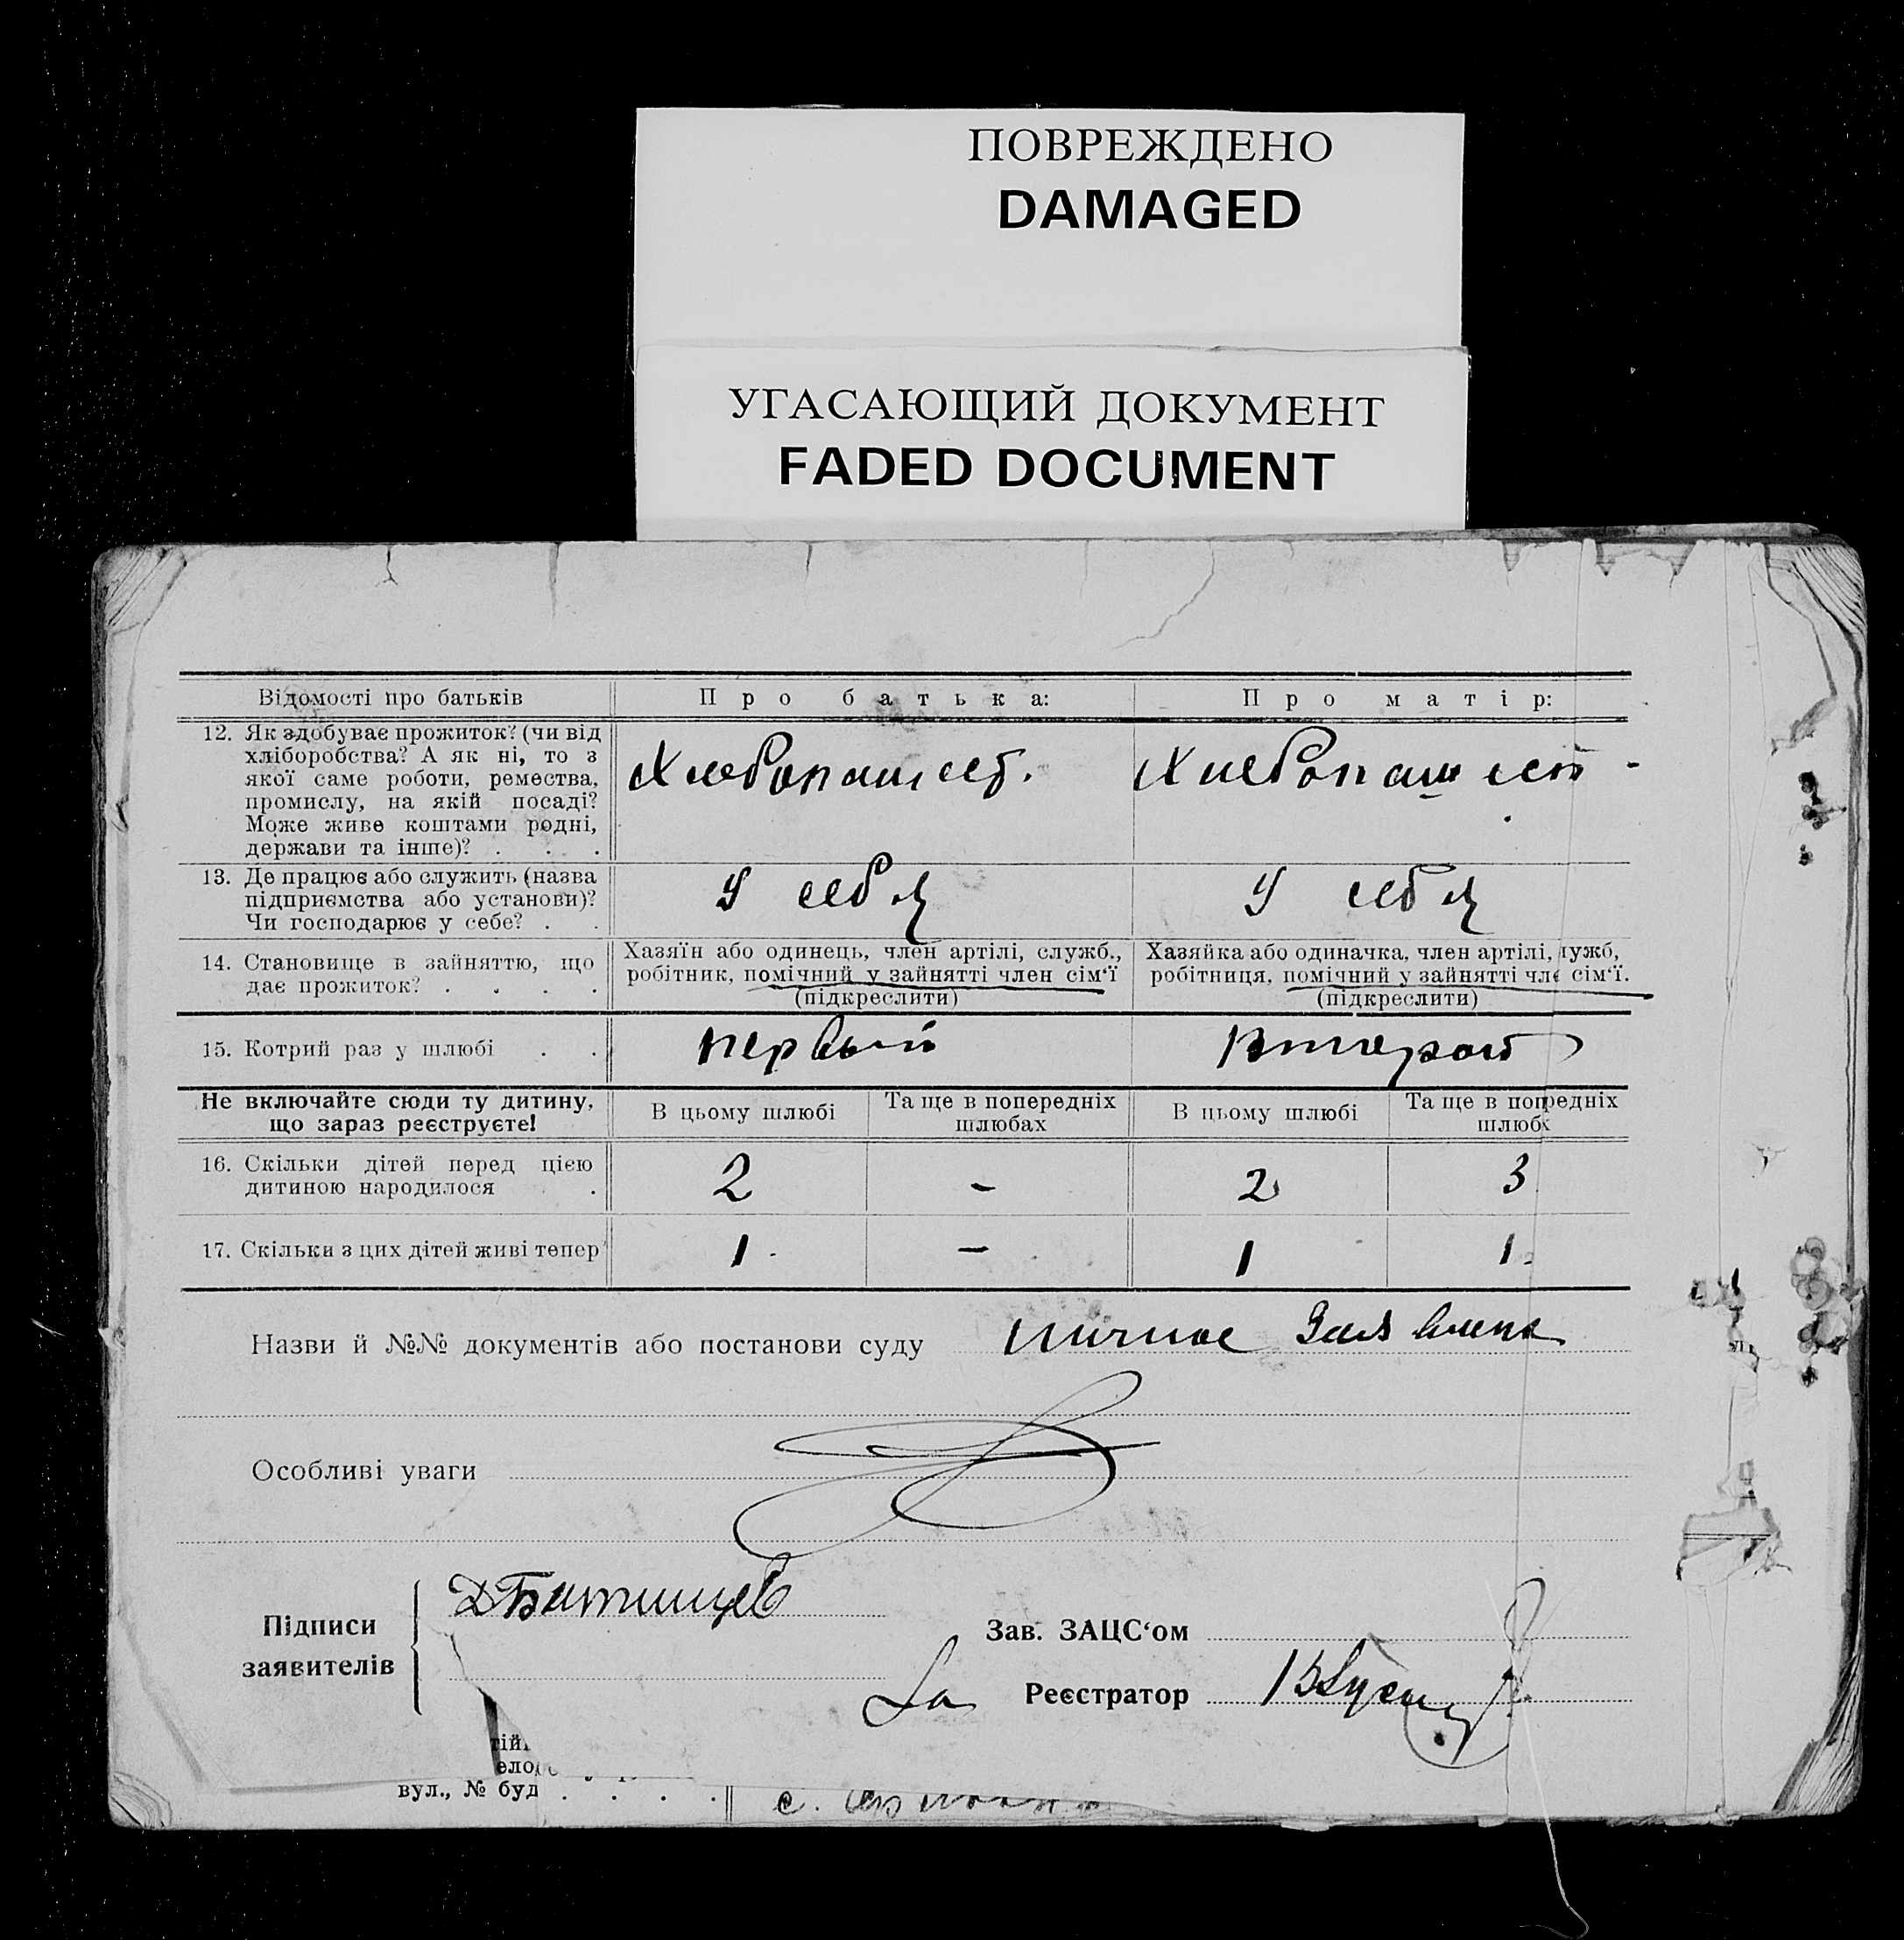 ПОВРЕЖДЕНО
DAMAGED
УГАСАЮЩИЙ ДОКУМЕНТ
FADED DOCUMENT
Відомості про батьків
Про батька:
Про матір:
12. Як здобуває прожиток? (чи від
хліборобства? А як ні, то з
якої саме роботи, ремества,
промислу, на якій посаді?
Може живе коштами родні,
держави та інше)? . . .
Хлебопашест.
Хлебопашест -
13. Де працює або служить (назва
підприємства або установи)?
Чи господарює у себе? . .
У себя
У себя
14. Становище в зайняттю, що
дає прожиток? . . . .
Хазяїн або одинець, член артілі, служб.,
робітник, помічний у зайнятті член сім'ї
(підкреслити)
Хазяйка або одиначка, член артілі, служб,
робітниця, помічний у зайнятті чле сім'ї.
(підкреслити)
15. Котрий раз у шлюбі . .
первый
второй
Не включайте сюди ту дитину,
що зараз реєструєте!
В цьому шлюбі
Та ще в попередніх
шлюбах
В цьому шлюбі
Та ще в попередніх
шлюбх
16. Скільки дітей перед цією
дитиною народилося .
2
-
2
3
17. Скільки з цих дітей живі тепер
1
-
1
1
Назви й №№ документів або постанови суду личное Заявление
Особливі уваги
Підписи
заявителів
ДБатищев
Зав. ЗАЦС'ом
За Реєстратор
вул., № буд . . . .
с.